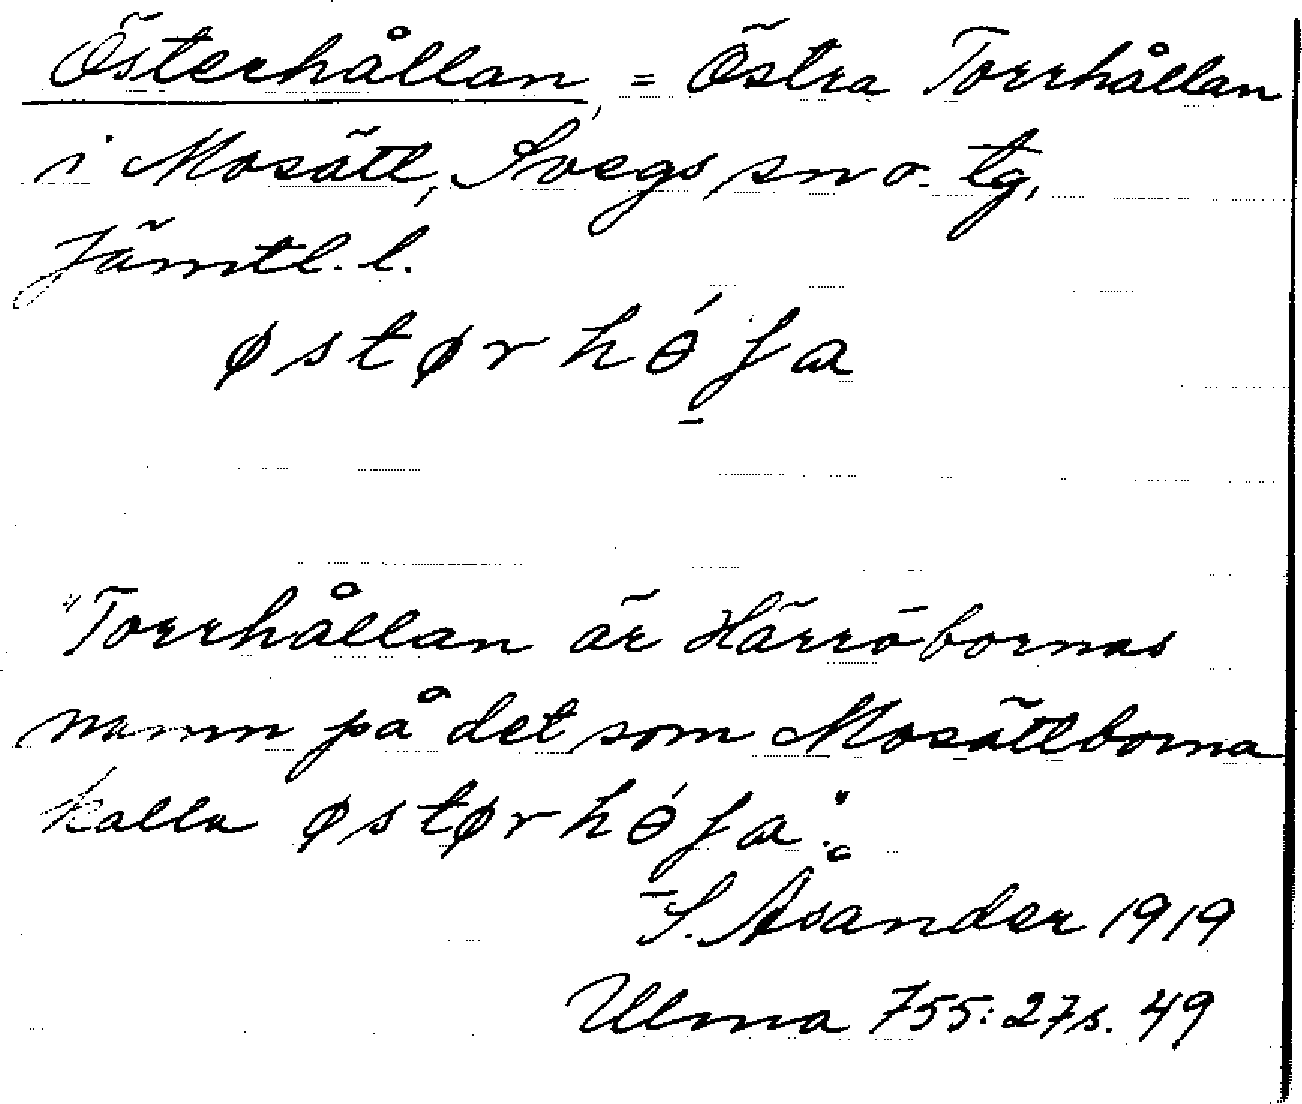 Österhållan, = Östra Torrhållan
i Mosätt, Svegs sn o. tg,
Jämtl. l.
østørhɵ́ʃa
"Torrhållan är Härröbornas
namn på det som Mosättborna
kalla østørhɵ́ʃa".
S. Åsander 1919
Ulma 755:27 s. 49